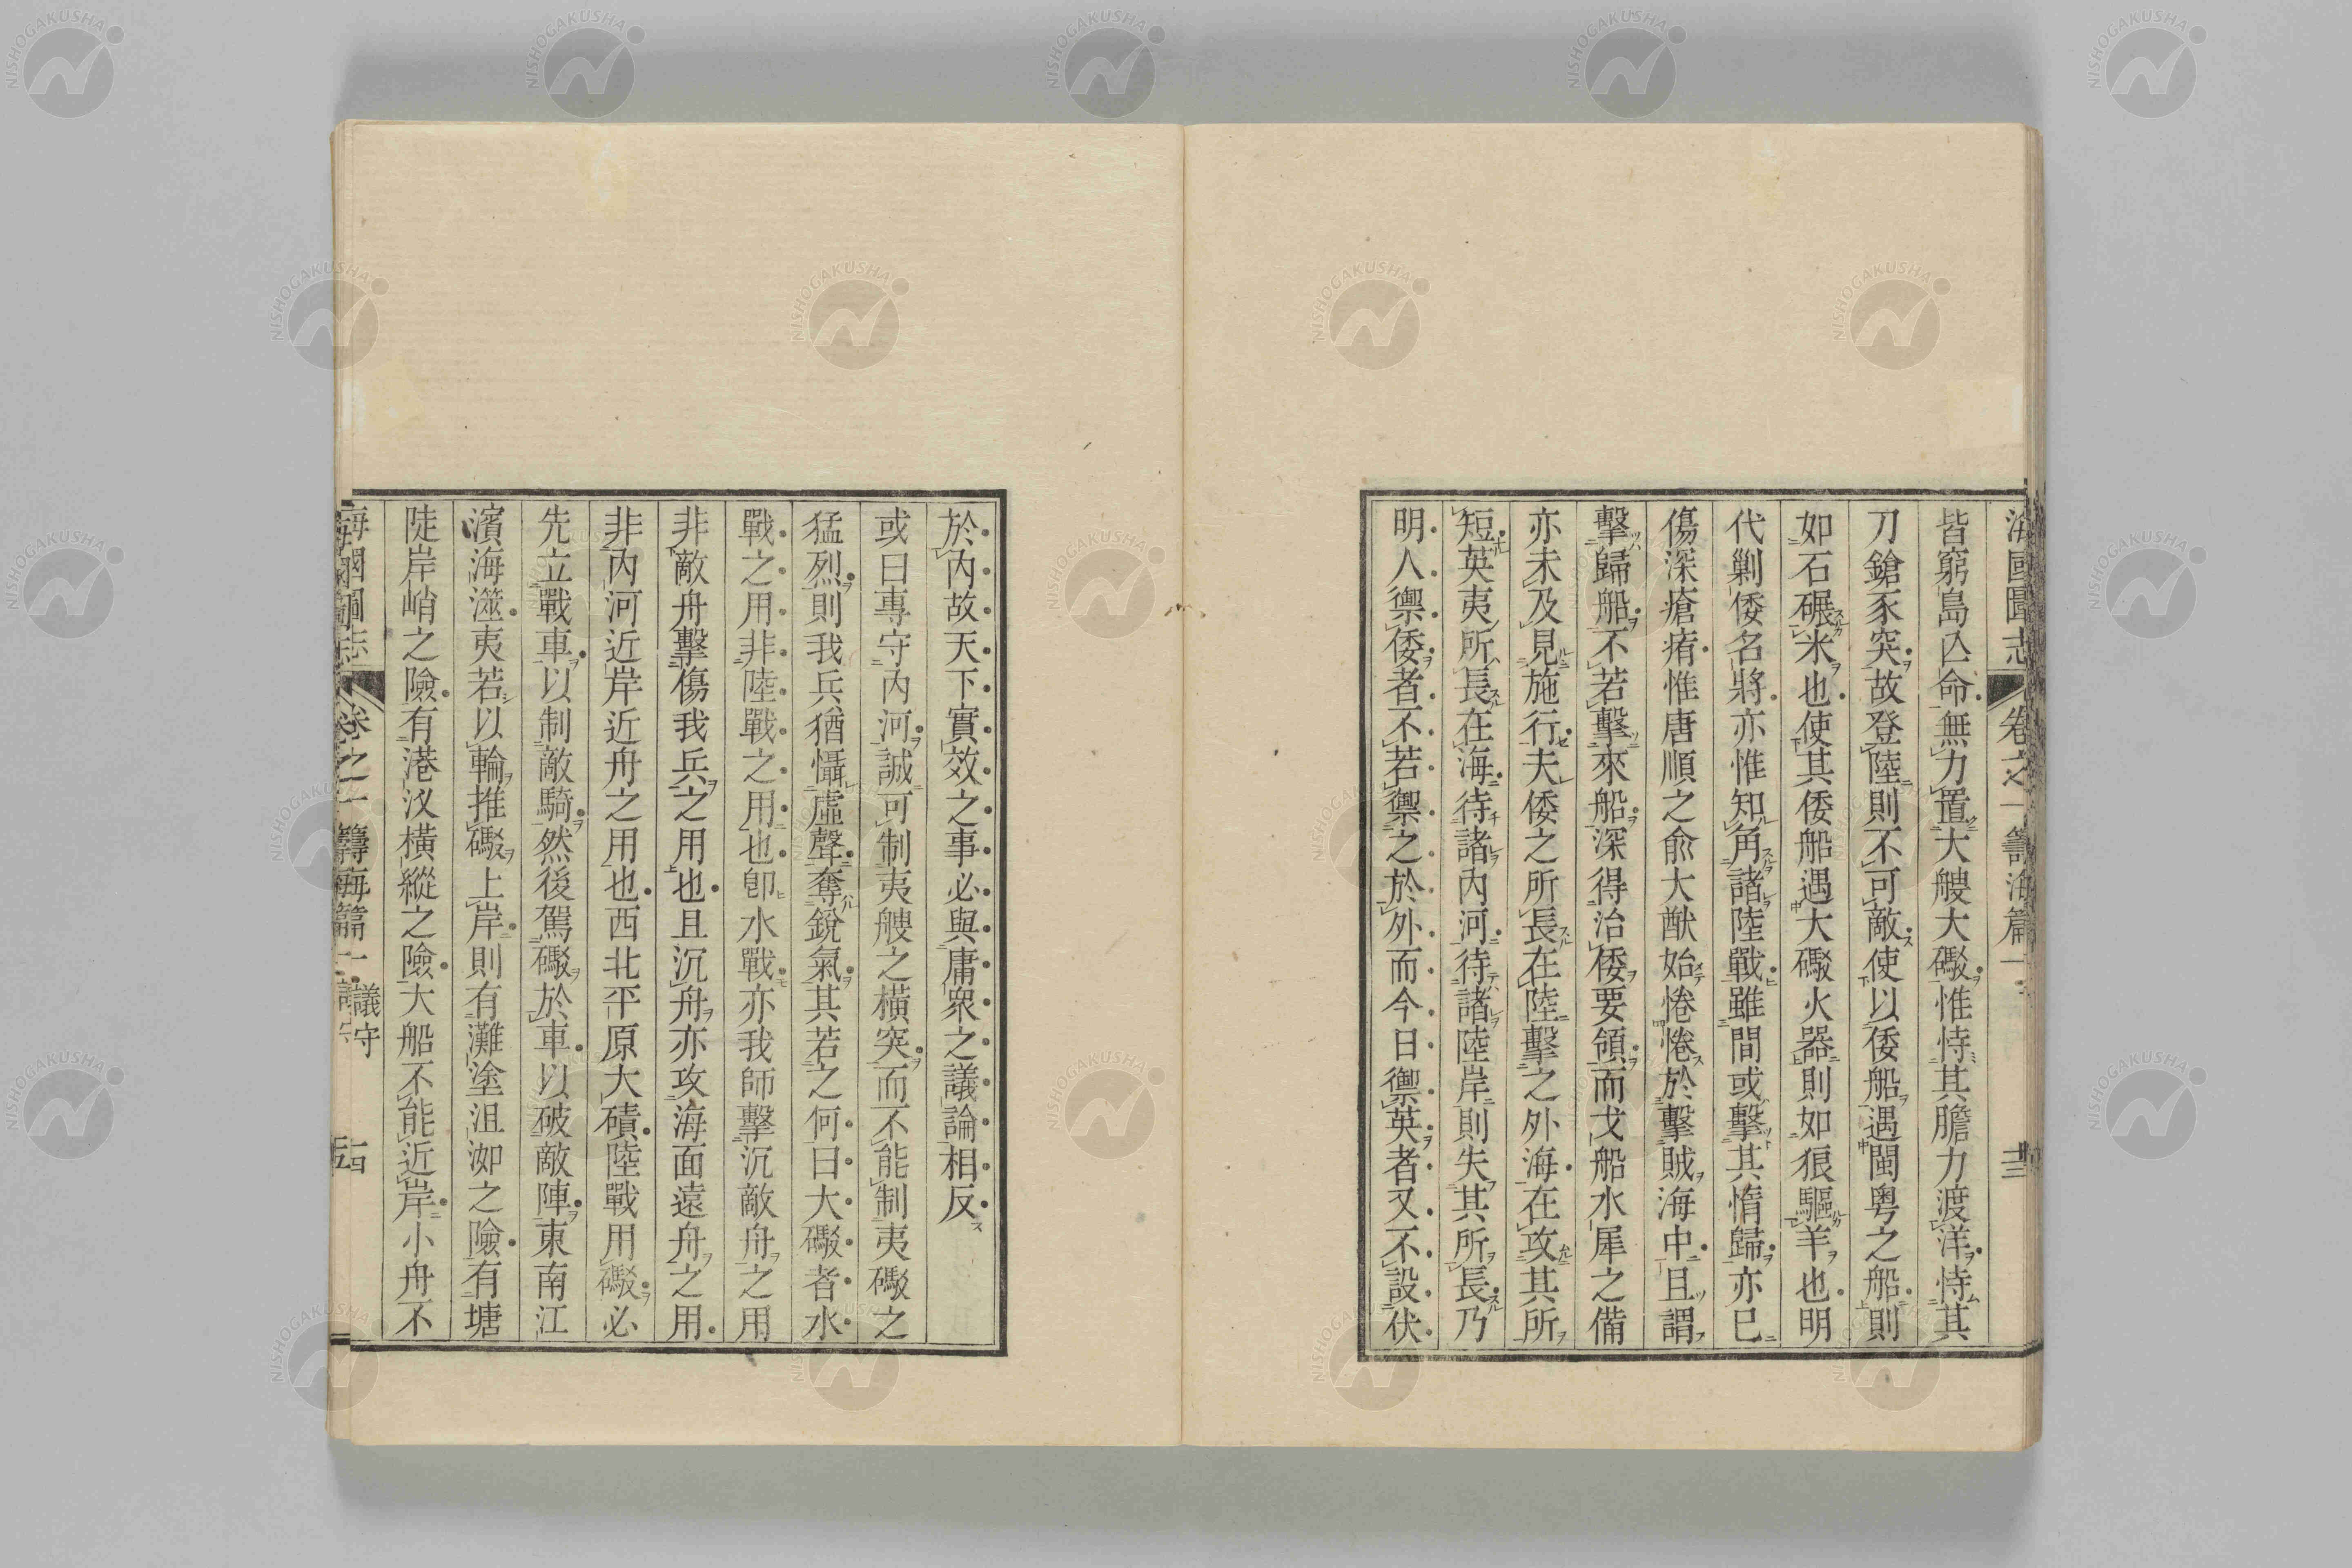 海國圖志 卷之一 籌海篇一
皆窮島亾命無力置大艘大礮惟恃其膽力渡洋恃其
刀鎗豕突故登陸則不可敵使以倭船遇閩粤之船則
如石碾米也使其倭船遇大礮火器則如狼驅羊也明
代剿倭名將亦惟知角諸陸戰雖間或擊其惰歸亦已
傷深瘡痏惟唐順之俞大猷始惓惓於擊賊海中且謂
擊歸船不若擊來船深得治倭要領而戈船水犀之備
亦未及見施行夫倭之所長在陸擊之外海在攻其所
短英夷所長在海待諸內河待諸陸岸則失其所長乃
明人禦倭者不若禦之於外而今日禦英者又不設伏
於內故天下實效之事必與庸衆之議論相反
或曰專守內河誠可制夷艘之橫突而不能制夷礮之
猛烈則我兵猶懾虛聲奪銳氣其若之何曰大礮者水
戰之用非陸戰之用也卽水戰亦我師擊沉敵舟之用
非敵舟擊傷我兵之用也且沉舟亦攻海面遠舟之用
非內河近岸近舟之用也西北平原大磧陸戰用礮必
先立戰車以制敵騎然後駕礮於車以破敵陣東南江
濱海澨夷若以輪推礮上岸則有灘塗沮洳之險有塘
陡岸峭之險有港汊橫縱之險大船不能近岸小舟不
海國圖志 卷之一 籌海篇一 議守
NISHOGAKUSHA